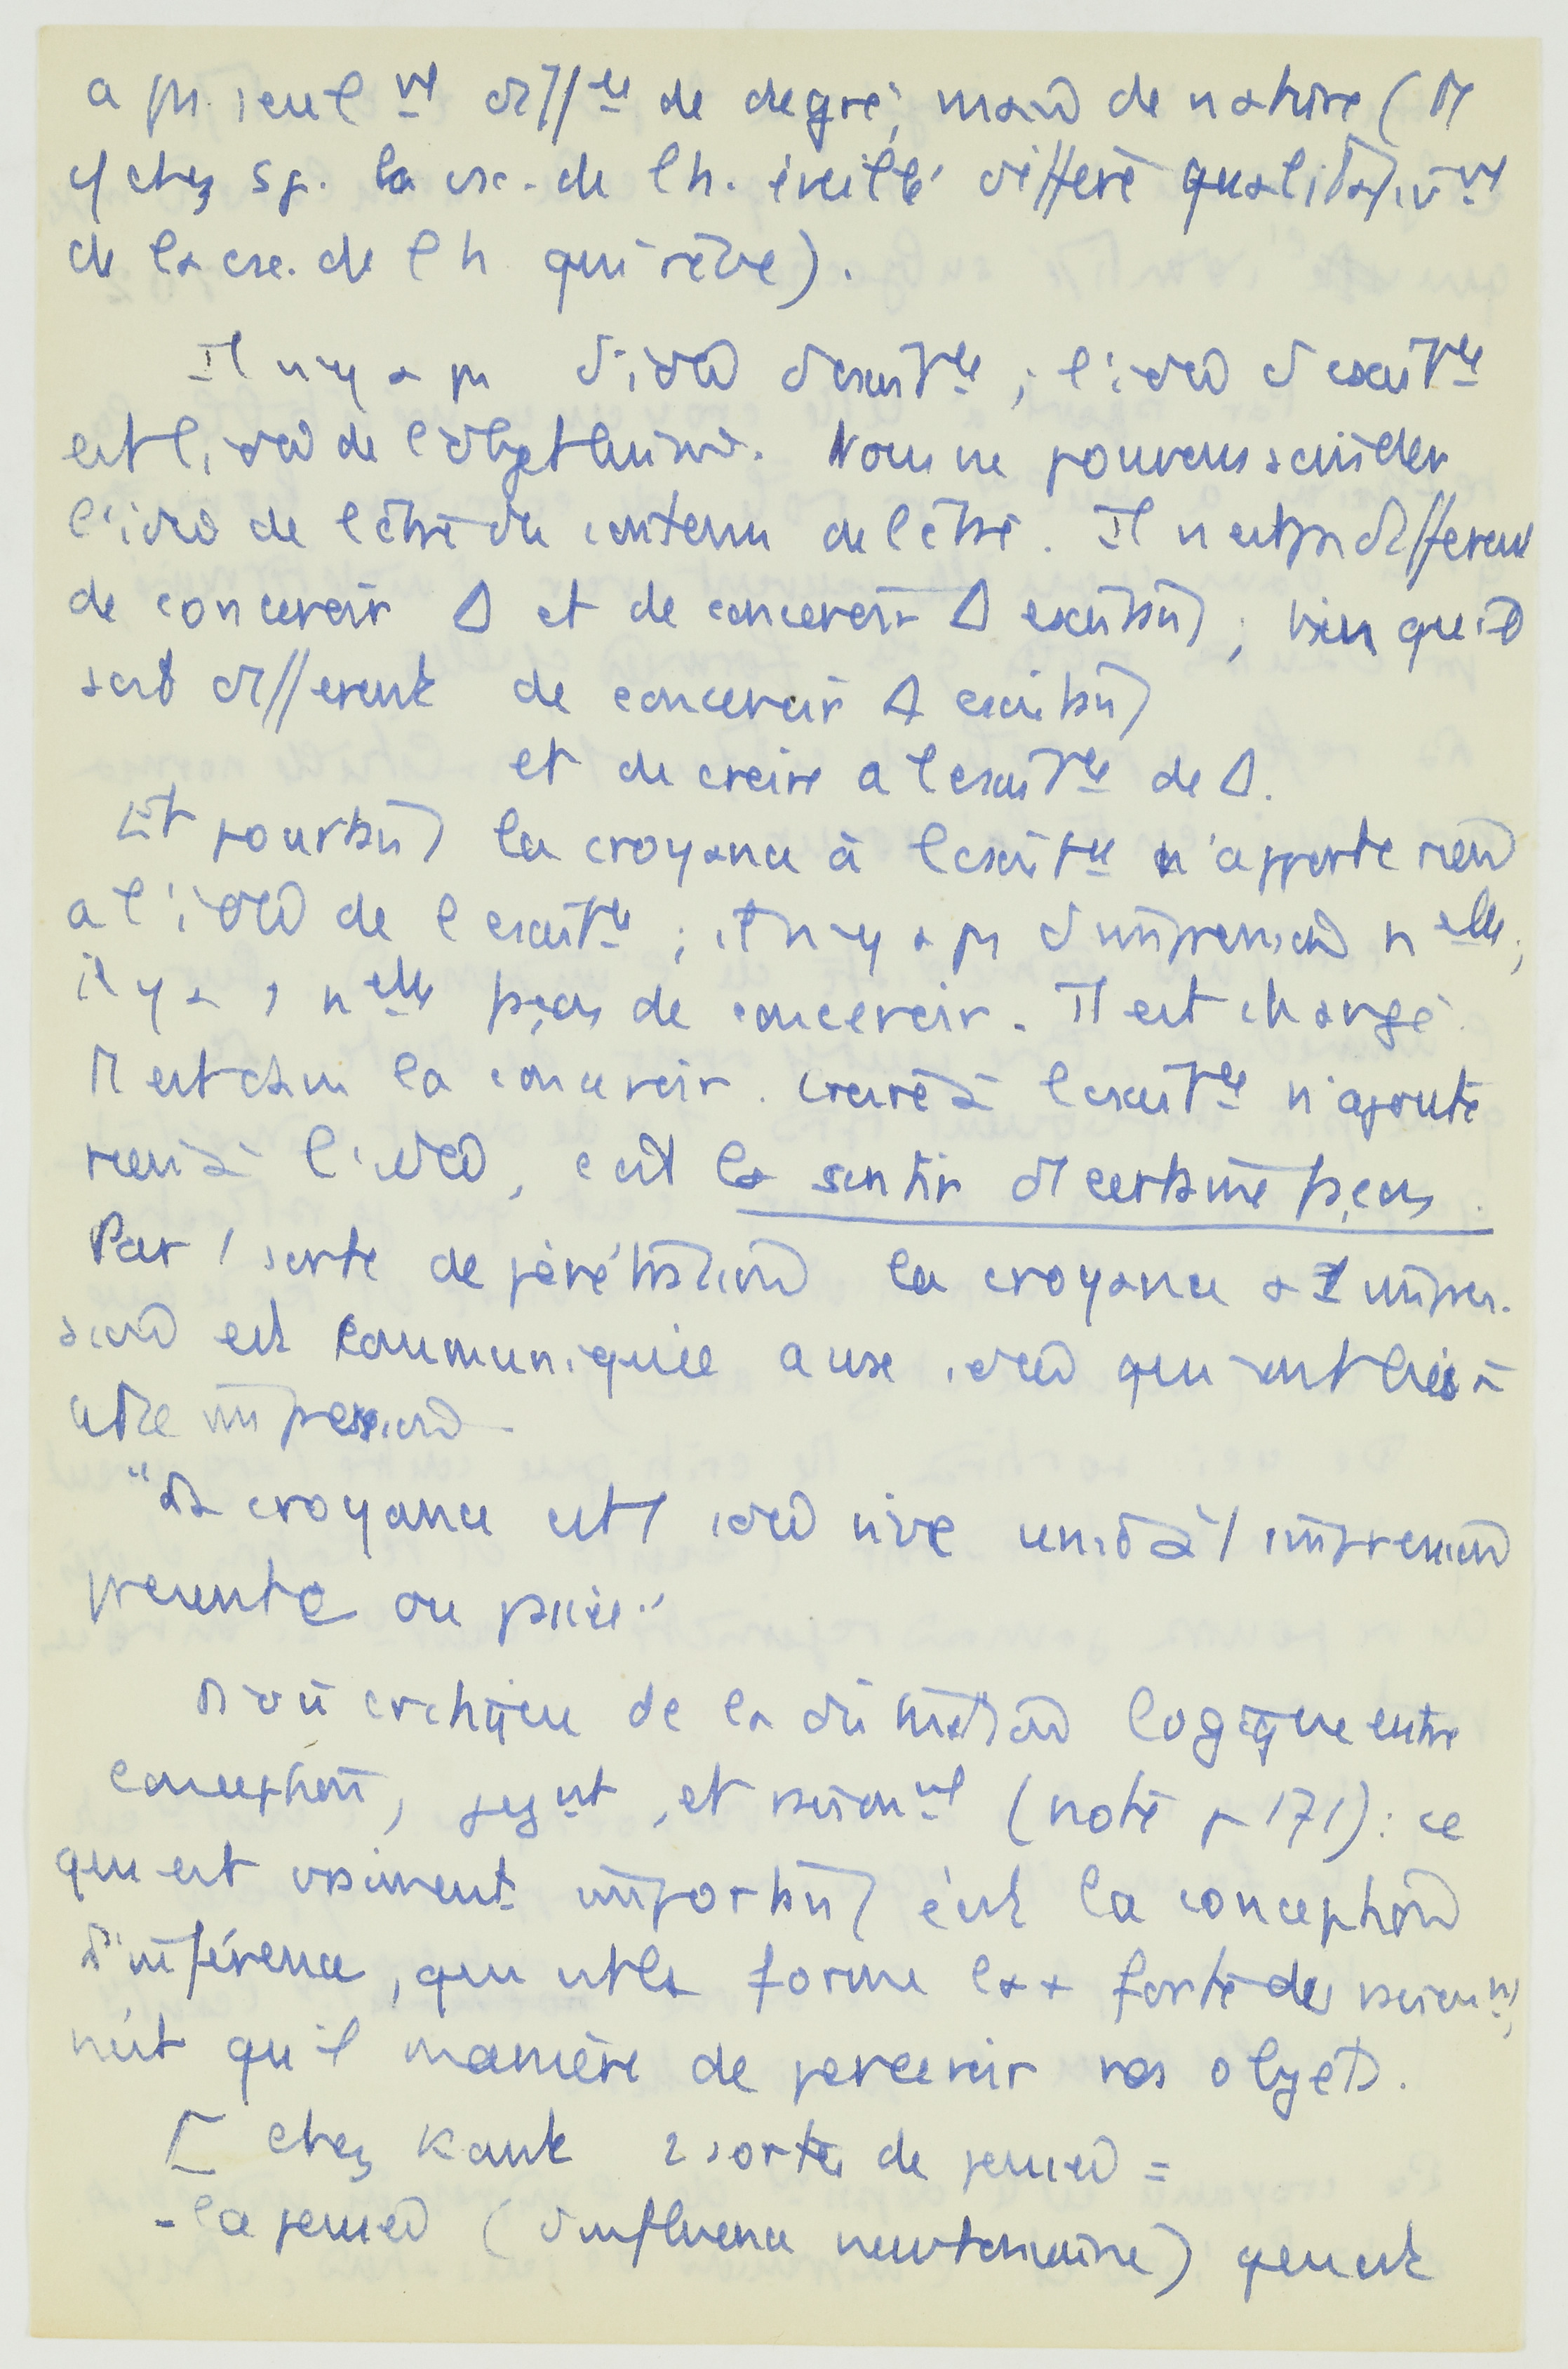 a pas seul^nt diff^ce de degré, mais de nature (de
m chez Sp. la csc. de l h. éveillé diffère qualitativ^nt
de la csc. de l h qui rêve).
Il n y a pas d'idée d exist^ce ; l'idée d exist^ce
est l idée de l objet lui m. Nous ne pouvons scinder
l'idée de l être du contenu de l être. Il n est pas différent
de concevoir Δ et de concevoir Δ existant ; bien qu il
soit différent de concevoir Δ existant
et de croire a l exist^ce de Δ.
Et pourtant la croyance à l exist^ce n'apporte rien
a l'idée de l exist^ce ; il n y a pas d impression n^elle ;
il y a 1 n^elle façon de concevoir. Il est changé
la concevoir. Croire à l exist^ce n'ajoute
rien à l'idée, c est la sentir d certaine façon.
Par 1 sorte de pénétration la croyance a 1 impres-
sion est communiquée aux idées qui sont liées à
cette impression
"La croyance est 1 idée vive unie à 1 impression
présente ou passée"
D'où critique de la distinction logique entre
conception, jug^nt, et raisonn^nt (note p 171) : ce
qui est vraiment important c'est la conception
d'inférence, qui est la forme la + forte de raisonn^nt,
n'est qu 1 manière de percevoir nos objets.
[ chez Kant 2 sortes de pensée =
- la pensée (d influence newtonienne) qui est